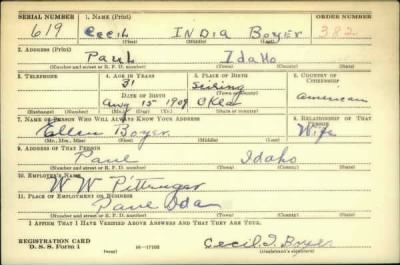 SERIAL NUMBER 1. NAME (Print) ORDER NUMBER
619 Cecil INDIA Boyer 382
(First) (Middle) (Last)
2. ADDRESS (Print)
Paul Idaho
(Number and street or R. F. D. number) (Town) (County) (State)
3. TELEPHONE 4. AGE IN YEARS 5. PLACE OF BIRTH 6. COUNTRY OF CITIZENSHIP
31 Seiling
DATE OF BIRTH
Aug 15 1909 Okla American
(Exchange) (Number) (Mo.) (Day) (Yr.) (State or country)
7. NAME OF PERSON WHO WILL ALWAYS KNOW YOUR ADDRESS 8. RELATIONSHIP OF THAT PERSON
Ellen Boyer Wife
(Mr., Mrs., Miss) (First) (Middle) (Last)
9. ADDRESS OF THAT PERSON
Paul Idaho
(Number and street or R. F. D. number) (Town) (County) (State)
10. EMPLOYER'S NAME
W W Pittenger
11. PLACE OF EMPLOYMENT OR BUSINESS
Paul Ida
(Number and street or R. F. D. number) (Town) (County) (State)
I AFFIRM THAT I HAVE VERIFIED ABOVE ANSWERS AND THAT THEY ARE TRUE.
REGISTRATION CARD
D. S. S. Form 1 (over) 16-17105 Cecil I. Boyer
(Registrant's signature)